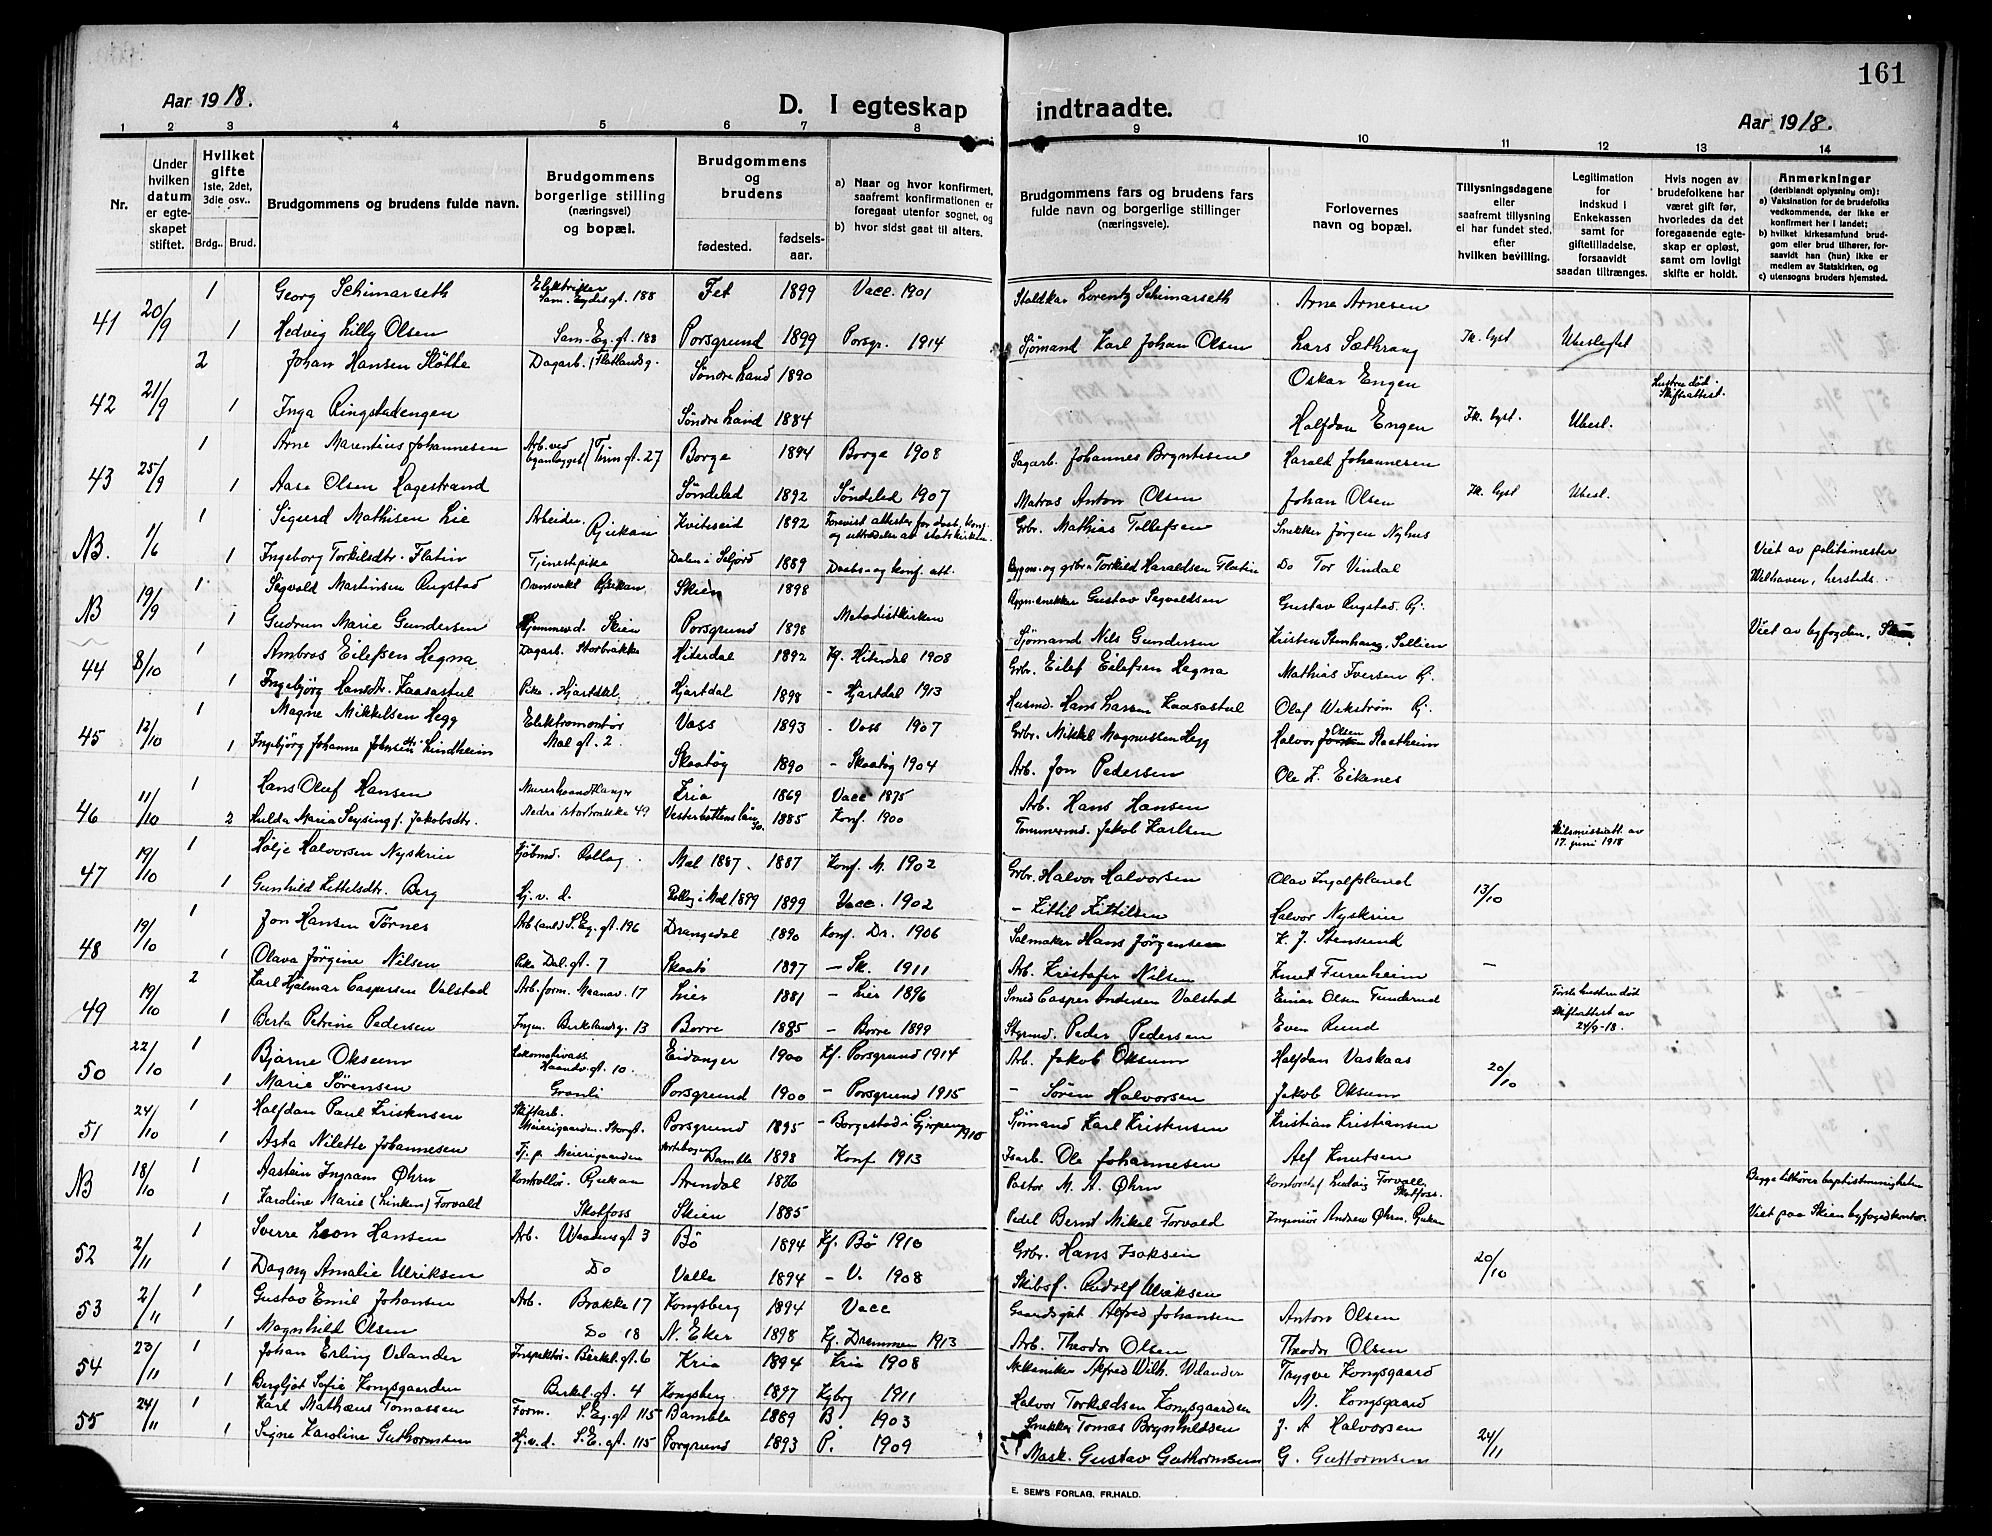 161
Aar 1918.
D. I egteskap indtraadte.
Aar 1918.
1 2 3 4 5 6 7 8 9 10 11 12 13 14
Nr.
Under hvilken datum er egteskapet stiftet.
Hvilket gifte 1ste, 2det, 3die osv..
Brdg.. Brud.
Brudgommens og brudens fulde navn.
Brudgommens borgerlige stilling (næringsvei) og bopæl.
Brudgommens og brudens
fødested.
fødsels-aar.
a) Naar og hvor konfirmert, saafremt konfirmationen er foregaat utenfor sognet, og
b) hvor sidst gaat til alters.
Brudgommens fars og brudens fars fulde navn og borgerlige stillinger (næringsveie).
Forlovernes navn og bopæl.
Tillysningsdagene eller saafremt tillysning ei har fundet sted, efter hvilken bevilling.
Legitimation for indskud i Enkekassen samt for giftetilladelse, forsaavidt saadan tiltrænges.
Hvis nogen av brudefolkene har været gift før, hvorledes da det foregaaende egteskap er opløst, samt om lovligt skifte er holdt.
Anmerkninger (deriblandt oplysning om):
a) Vaksination for de brudefolks vedkommende, der ikke er konfirmert her i landet;
b) hvilket kirkesamfund brudgom eller brud tilhører, forsaavidt han (hun) ikke er medlem av Statskirken, og
c) utensogns bruders hjemsted.
41 20/9 1 Georg Schimarseth Elektriker Sam. Eydes gt. 188 Fet 1899 Vacc. 1901 Staldkar Lorentz Schimarseth Arne Arnesen
1 Hedvig Lilly Olsen Sam. Eg. gt. 188 Porsgrund 1899 Porsgr. 1914 Sjømand Karl Johan Olsen Lars Sæthrang Fk. lyst Ubeslegtet
42 21/9 2 Johan Hansen Sløtte Dagarb. Flatlandsg. Søndre Land 1890 Oskar Engen Hustru død. Skifteattest.
1 Inga Ringstadengen Søndre Land 1884 Halfdan Engen Fk. lyst. Ubesl.
43 25/9 1 Arne Marentius Johannesen Arb. ved Tinn gt. 27 Borge 1894 Borge 1908 Sagarb. Johannes Bryntesen Harald Johannesen
1 Aase Olsen Hagestrand Søndeled 1892 Søndeled 1907 Matros Anton Olsen Johan Olsen Fk. lyst Ubesl.
NB. 1/6 1 Sigurd Mathisen Lie Arbeider Rjukan Kviteseid 1892 Forevist attester for daab, konf. og utträdelse av statskirken. Grbr. Mathias Tollefsen Snekker Jørgen Nyhus
1 Ingeborg Torkilsdtr. Flatin Tjenestepike Dalen i Seljord 1889 Daabs- og konf. att. Bygm. og grbr. Torkild Haraldsen Flatin Do Tor Vindal Viet av politimester
NB 19/9 1 Sigvald Martinsen Rugstad Rjukan Skien 1898 Gustav Sigvaldsen Gustav Rugstad. Rj. hersteds.
1 Gudrun Marie Gundersen Hjemmev. d. Skien Porsgrund 1898 Metodistkirken Sjømand Nils Gundersen Viet av byfogden, Skien.
44 8/10 1 Ambros Eilefsen Hegna Dagarb. Storbrakke Hiterdal 1892 Kf. Hiterdal 1908 Grbr. Eilef Eilefsen Hegna Mathias Iversen Rj.
1 Ingebjørg Hansdtr. Kaasastul Pike. Hjartdal Hjartdal 1898 - Hjartdal 1913 Husmd. Hans Larsen Kaasastul Olaf Wikstrøm Rj.
45 12/10 1 Magne Mikkelsen Hegg Elektromontør Mæl gt. 2 Voss 1893 - Voss 1907 Grbr. Mikkel Magnussen Hegg Halvor Olsen Staatheim
1 Ingebjørg Johanne Johnsen Lindheim Skaatøy 1890 - Skaatøy 1904 Arb. Jon Pedersen Ole H. Eikenes
46 11/10 1 Hans Oluf Hansen Murerhaandlanger Kria 1869 Vacc 1875 Arb. Hans Hansen
2 Hulda Maria Seysing f. Jakobsdtr. Nedre storbrakke 49 Vesterbottens län 1885 Konf. 1900 Tømmermd. Jakob Karlsen Skilsmisseatt. av 17. juni 1918
47 19/10 1 Hølje Halvorsen Nyskrin Kjøbmd. Rollag Mæl 1887. 1887 Konf. M. 1902 Grbr. Halvor Halvorsen Olav Ingolfsland
1 Gunhild Kittilsdtr. Berg Hj. v. d. 1899 Vacc. 1902 - Kittil Kittilsen Halvor Nyskrin 13/10
48 19/10 1 Jon Hansen Tørnes S. Eg. gt. 196 Drangedal 1890 Konf. Dr. 1906 Salmaker Hans Jørgensen K. J. Stensund
1 Olava Jørgine Nilsen Pike Dal. gt. 7 Skaatø 1897 - Sk. 1911 Arb. Kristofer Nilsen Knut Fureheim -
49 19/10 2 Karl Hjalmar Caspersen Valstad Arb. form. Maanav. 17 Lier 1881 - Lier 1896 Smed Casper Andersen Valstad Einar Olsen Tunderud Første hustru død
1 Berta Petrine Pedersen Ingen. Birkelandsg. 13 Borre 1885 - Borre 1899 Styrmd. Peder Pedersen Even Ruud Skifteattest av 24/9-18.
50 22/10 1 Bjarne Oksum Lokomotivass. Haandv. gt. 10. Eidanger 1900 Kf. Porsgrund 1914 Arb. Jakob Oksum Halfdan Vaskaas
1 Marie Sørensen Granli Porsgrund 1900 - Porsgrund 1915 - Søren Halvorsen Jakob Oksum 20/10
51 24/10 1 Halfdan Paul Kristensen Skiftarb. Meierigaarden. Storgt. Porsgrund 1895 - Borgestad i Gjerpen 1910 Sjømand Karl Kristensen Kristian Kristiansen
1 Asta Nilette Johannesen Tj. p. Meierigaarden Bamble 1898 Konf 1913 Isarb. Ole Johannesen Alf Knutsen
NB 18/10 1 Aastein Ingram Øhrn Kontrollør. Rjukan Arendal 1886 Pastor M. A. Øhrn Kontorchef Ludvig Forvall Skotfoss. Begge tilhører baptistmenigheten
1 Karoline Marie (Linken) Forvald Skotfoss Skien 1885 Pedel Bernt Mikal Forvald Ingeniør Andrew Øhrn. Rjukan Viet paa Skien byfogdkontor.
52 2/11 1 Sverre Leon Hansen Arb. Waadensgt 3 Bø 1894 Kf. Bø 1910 Grbr. Hans Isaksen
1 Dagny Amalie Ulriksen Do Valle 1894 - V. 1908 Skibsf. Rudolf Ulriksen 20/10
53 2/11 1 Gustav Emil Johansen Arb. Brakke 17 Kongsberg 1894 Vacc Alfred Johansen Anton Olsen
1 Magnhild Olsen Do 18 N. Eker 1898 Kf. Drammen 1913 Arb. Theodor Olsen Theodor Olsen
54 23/11 1 Johan Erling Velander Inspektør. Birkel. gt. 6 Kria 1894 Kria 1908 Mekaniker Alfred Wilh. Velander Trygve Kongsgaard
1 Bergljot Sofie Kongsgaarden Birkel. gt. 4 Kongsberg 1897 Kgbrg 1911 Halvor Torkildsen Kongsgaarden M. Kongsgaard
55 24/11 1 Karl Mathæus Tomassen Form. S. Eg. gt 115 Bamble 1889 B. 1903 Snekker Tomas Brynhildsen J. A Halvorsen
1 Signe Karoline Guthormsen Hj. v. d. S. E. gt. 115 Porgrund 1893 P. 1909 Mask. Gustav Guthormsen G. Guttormsen 24/11
E. SEM'S FORLAG, FR.HALD.